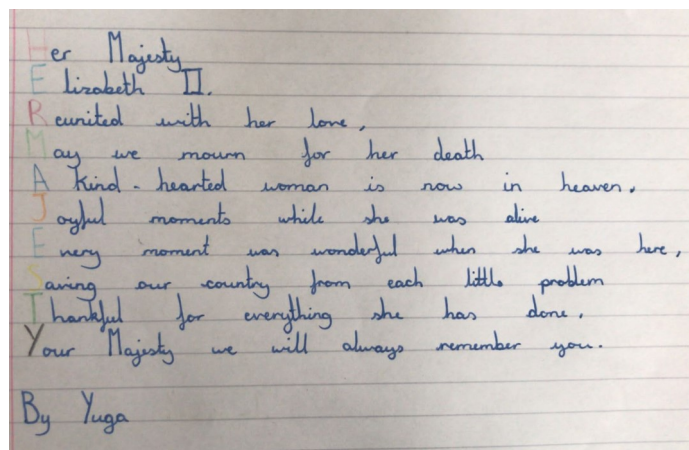 Her Majesty
Elizabeth II.
Reunited with her love,
May we mourn for her death
A kind-hearted woman is now in heaven.
Joyful moments while she was alive
Every moment was wonderful when she was here,
Saving our country from each little problem
Thankful for everything she has done.
Your Majesty we will always remember you.
By Yuga